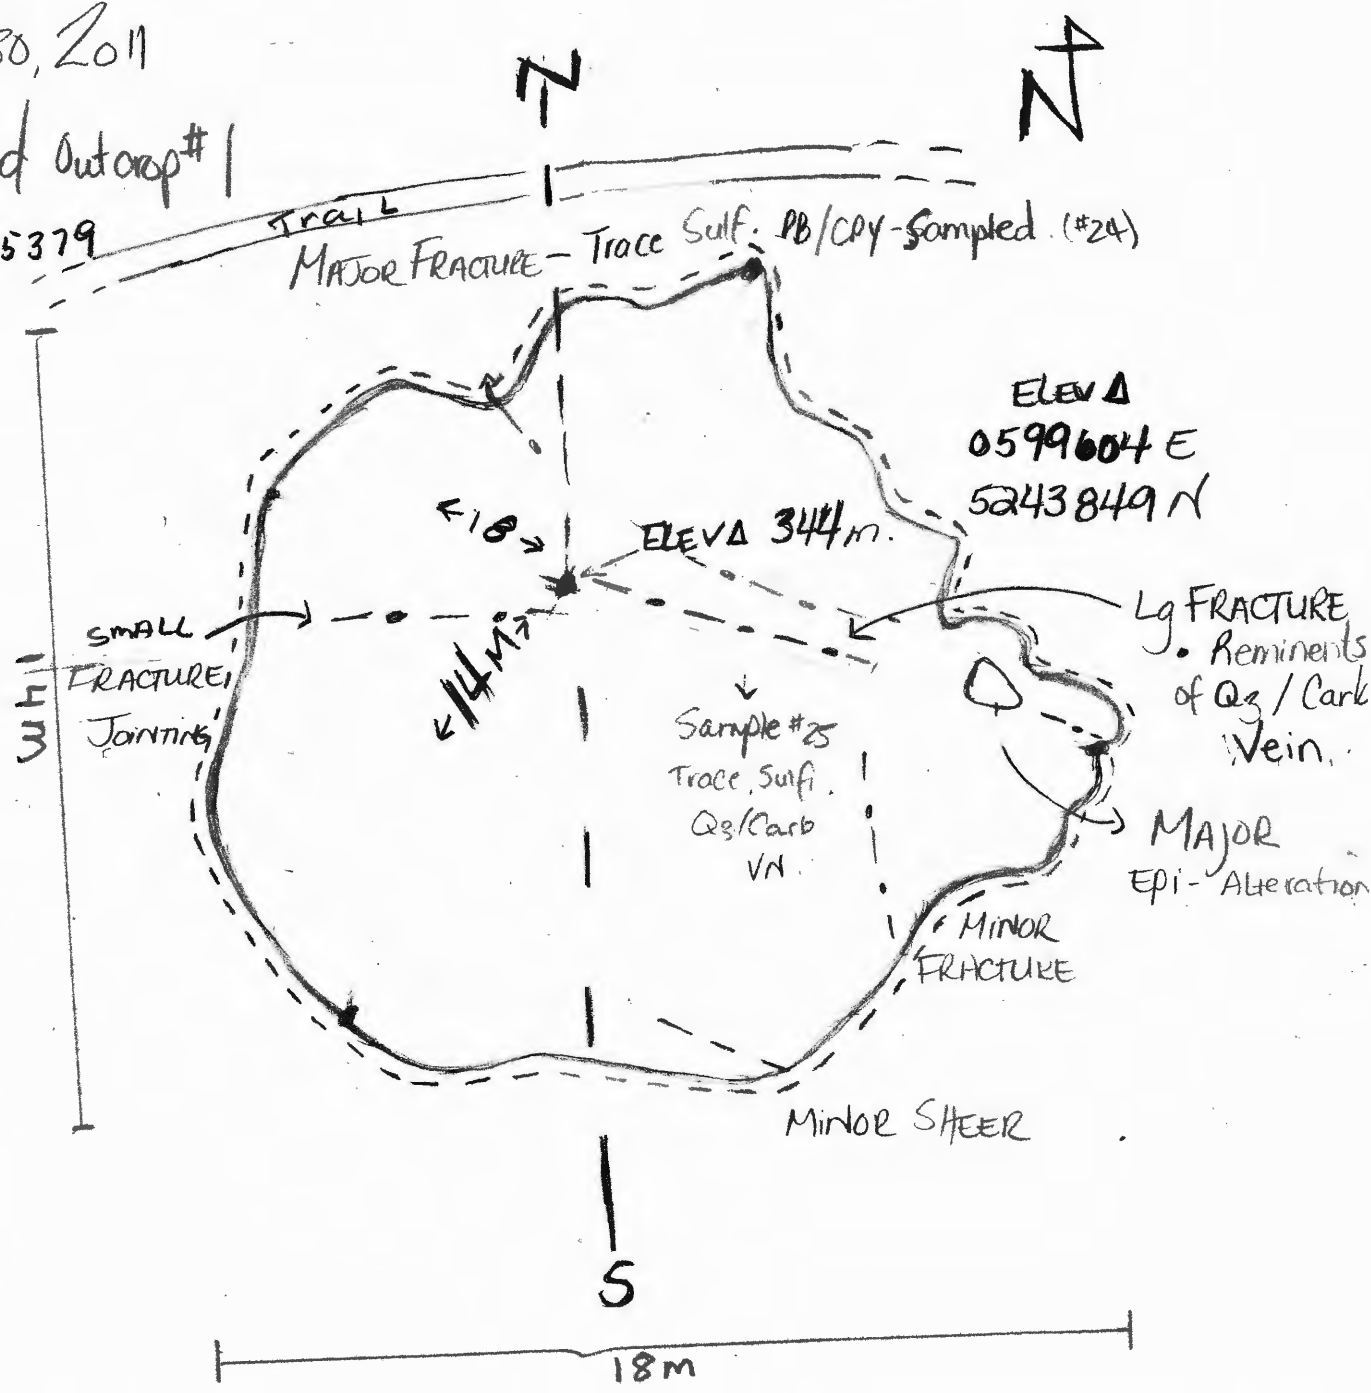 30, 2011
N
N
d Outcrop #1
5379
Trail
MAJOR FRACTURE - Trace Sulf. PB/CPY - Sampled. (#24)
ELEV Δ
0599604 E
5243849 N
18
ELEV Δ 344m.
SMALL
FRACTURE,
JOINTING
14m
14 M
Lg FRACTURE
• Reminents
of Qz / Carb
Vein.
Sample #25
Trace Sulfi.
Qz/Carb
VN.
MAJOR
Epi- Alteration
MINOR
FRACTURE
MINOR SHEER
S
18m